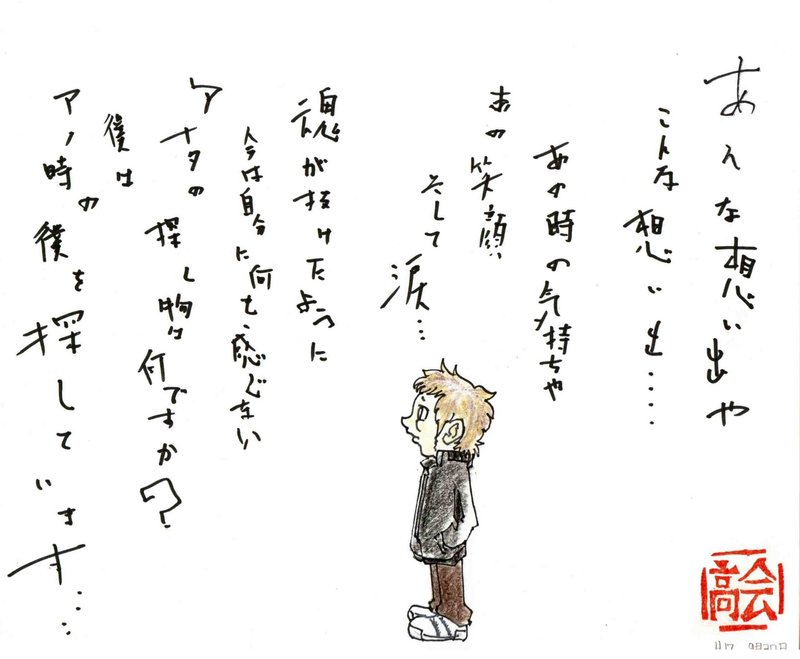 あんな想い出や
こんな想い出.....
あの時の気持ちや
あの笑顔
そして涙...
魂が抜けたように
今は自分に何も感じない
アナタの探し物は何ですか?
僕は
アノ時の僕を探しています....